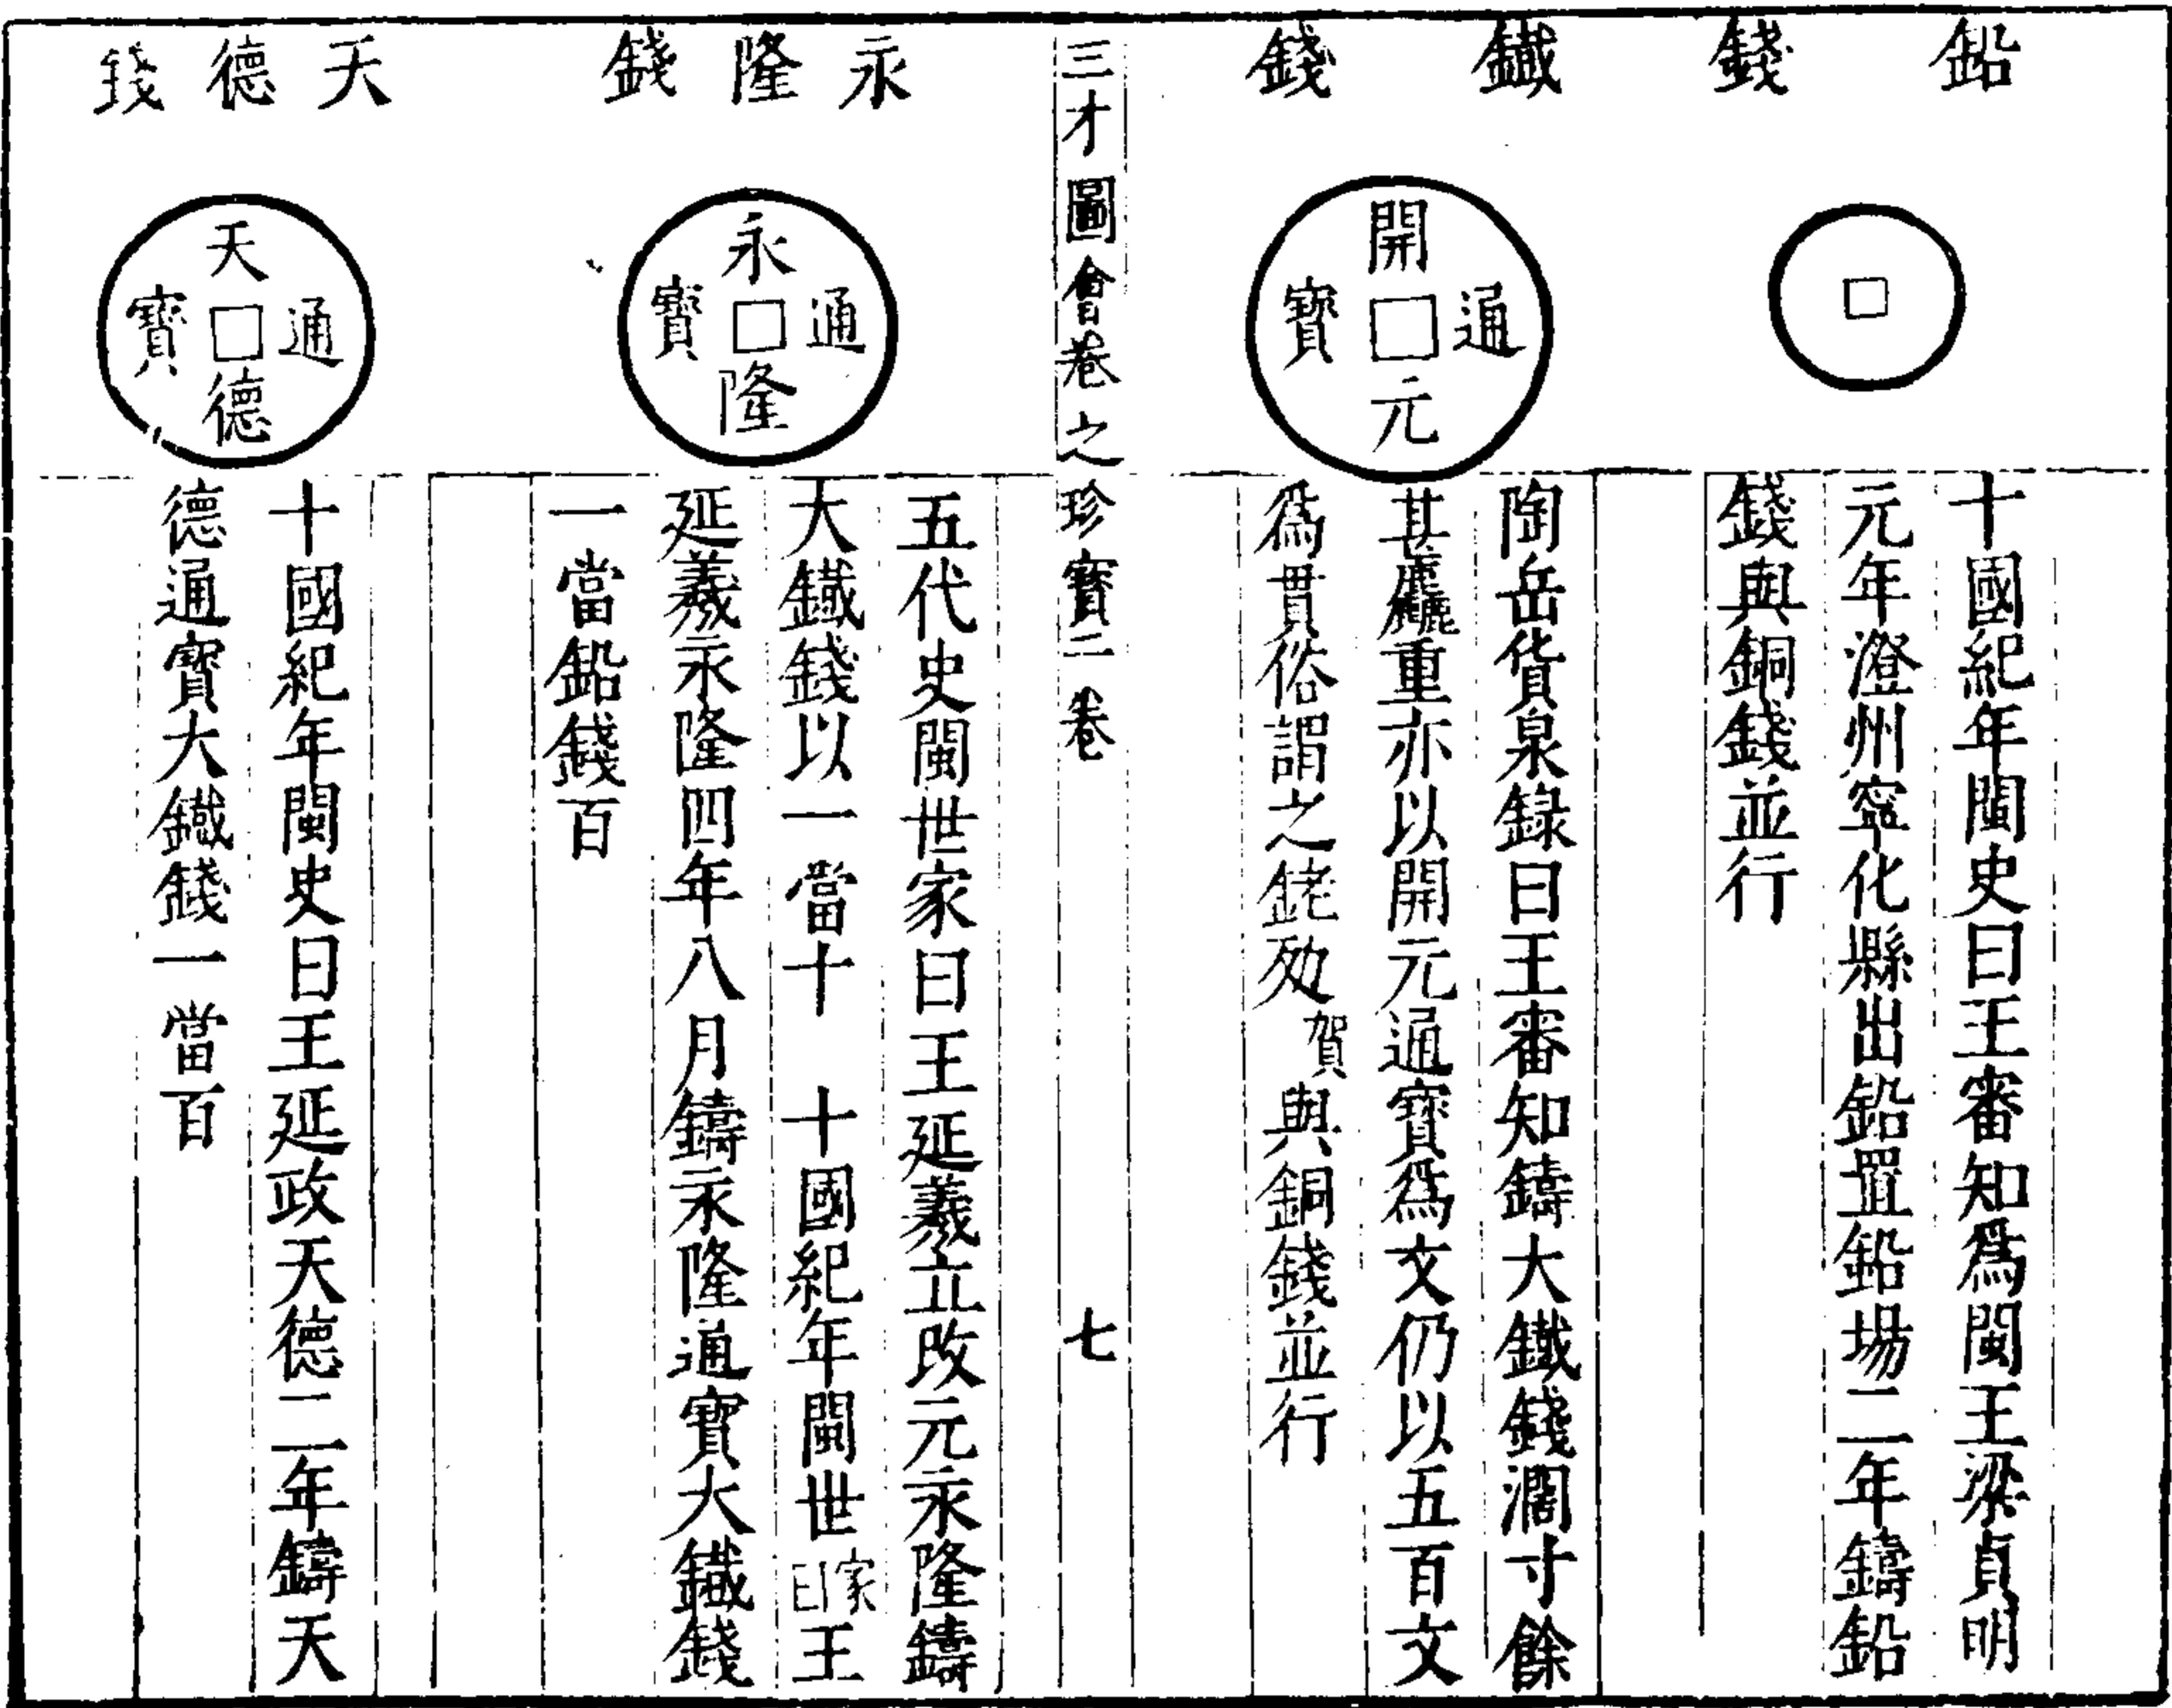 鉛錢
十國紀年閩史曰王審知爲閩王梁貞明
元年澄州寧化縣出鉛置鉛場二年鑄鉛
錢與銅錢並行
鐵錢
開元通寶
陶岳貨泉錄曰王審知鑄大鐵錢濶寸餘
甚麤重亦以開元通寶爲文仍以五百文
爲貫俗謂之銠㱡賀與銅錢並行
三才圖會卷之珍寶二卷 七
永隆錢
永隆通寶
五代史閩世家曰王延羲立改元永隆鑄
大鐵錢以一當十 十國紀年閩世家曰王
延羲永隆四年八月鑄永隆通寶大鐵錢
一當鉛錢百
天德錢
天德通寶
十國紀年閩史曰王延政天德二年鑄天
德通寶大鐵錢一當百